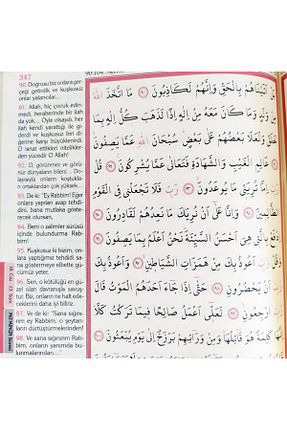 347
90. Doğrusu biz onlara ger-
çeği getirdik ve kuşkusuz
onlar yalancılar...
91. Allah, hiç çocuk edin-
medi, beraberinde bir ilah
da yok... Öyle olsaydı, her
ilah kendi yarattığı ile gi-
derdi ve
karşı üstünlük kurardı.
O isnat ettikleri nitelikler-
den yücedir O Allah!
92. O, görünmez ve görü-
nür dünyaların bilen!... Do-
layısıyla onların koştukla-
rı ortaklardan çok yüksek...
93. De ki: "Ey Rabbim! Eğer
onlara vadedilen azap tehdi-
bana mutlaka göste-
recek olursan,
94. Beni o zalimler sürüsü
içinde bulundurma Rab-
bim!
95. Kuşkusuz ki bizim, onla-
ra yaptığımız tehdidi sa-
na göstermeye elbette gü-
cümüz yeter.
96. Sen, o kötülüğü en gü-
zel olan davranışla savuş-
tur. Biz, onların ne halt ede-
ceklerini daha iyi biliriz.
97. Ve de ki: "Sana sığını-
rım ey Rabbim, o şeytan-
ların dürtüştürmelerinden!
98. Ve sana sığınırım Rab-
bim, onların yanımda bu-
lunmalarından..."
بَلْ اَتَيْنَاهُمْ بِالْحَقِّ وَاِنَّهُمْ لَكَاذِبُونَ ﴿٩٠﴾ مَا اتَّخَذَ اللّٰهُ
مِنْ وَلَدٍ وَمَا كَانَ مَعَهُ مِنْ اِلٰهٍ اِذًا لَذَهَبَ كُلُّ اِلٰهٍ بِمَا
خَلَقَ وَلَعَلَا بَعْضُهُمْ عَلٰى بَعْضٍ سُبْحَانَ اللّٰهِ عَمَّا يَصِفُونَ ﴿٩١﴾
عَالِمِ الْغَيْبِ وَالشَّهَادَةِ فَتَعَالٰى عَمَّا يُشْرِكُونَ ﴿٩٢﴾ قُلْ رَبِّ
اِمَّا تُرِيَنِّي مَا يُوعَدُونَ ﴿٩٣﴾ رَبِّ فَلَا تَجْعَلْنِي فِي الْقَوْمِ
الظَّالِمِينَ ﴿٩٤﴾ وَاِنَّا عَلٰى اَنْ نُرِيَكَ مَا نَعِدُهُمْ لَقَادِرُونَ ﴿٩٥﴾
اِدْفَعْ بِالَّتِي هِيَ اَحْسَنُ السَّيِّئَةَ نَحْنُ اَعْلَمُ بِمَا يَصِفُونَ ﴿٩٦﴾
وَقُلْ رَبِّ اَعُوذُ بِكَ مِنْ هَمَزَاتِ الشَّيَاطِينِ ﴿٩٧﴾ وَاَعُوذُ بِكَ
رَبِّ اَنْ يَحْضُرُونِ ﴿٩٨﴾ حَتّٰى اِذَا جَاءَ اَحَدَهُمُ الْمَوْتُ قَالَ
رَبِّ ارْجِعُونِ ﴿٩٩﴾ لَعَلِّي اَعْمَلُ صَالِحًا فِيمَا تَرَكْتُ كَلَّا
اِنَّهَا كَلِمَةٌ هُوَ قَائِلُهَا وَمِنْ وَرَائِهِمْ بَرْزَخٌ اِلٰى يَوْمِ يُبْعَثُونَ ﴿١٠٠﴾